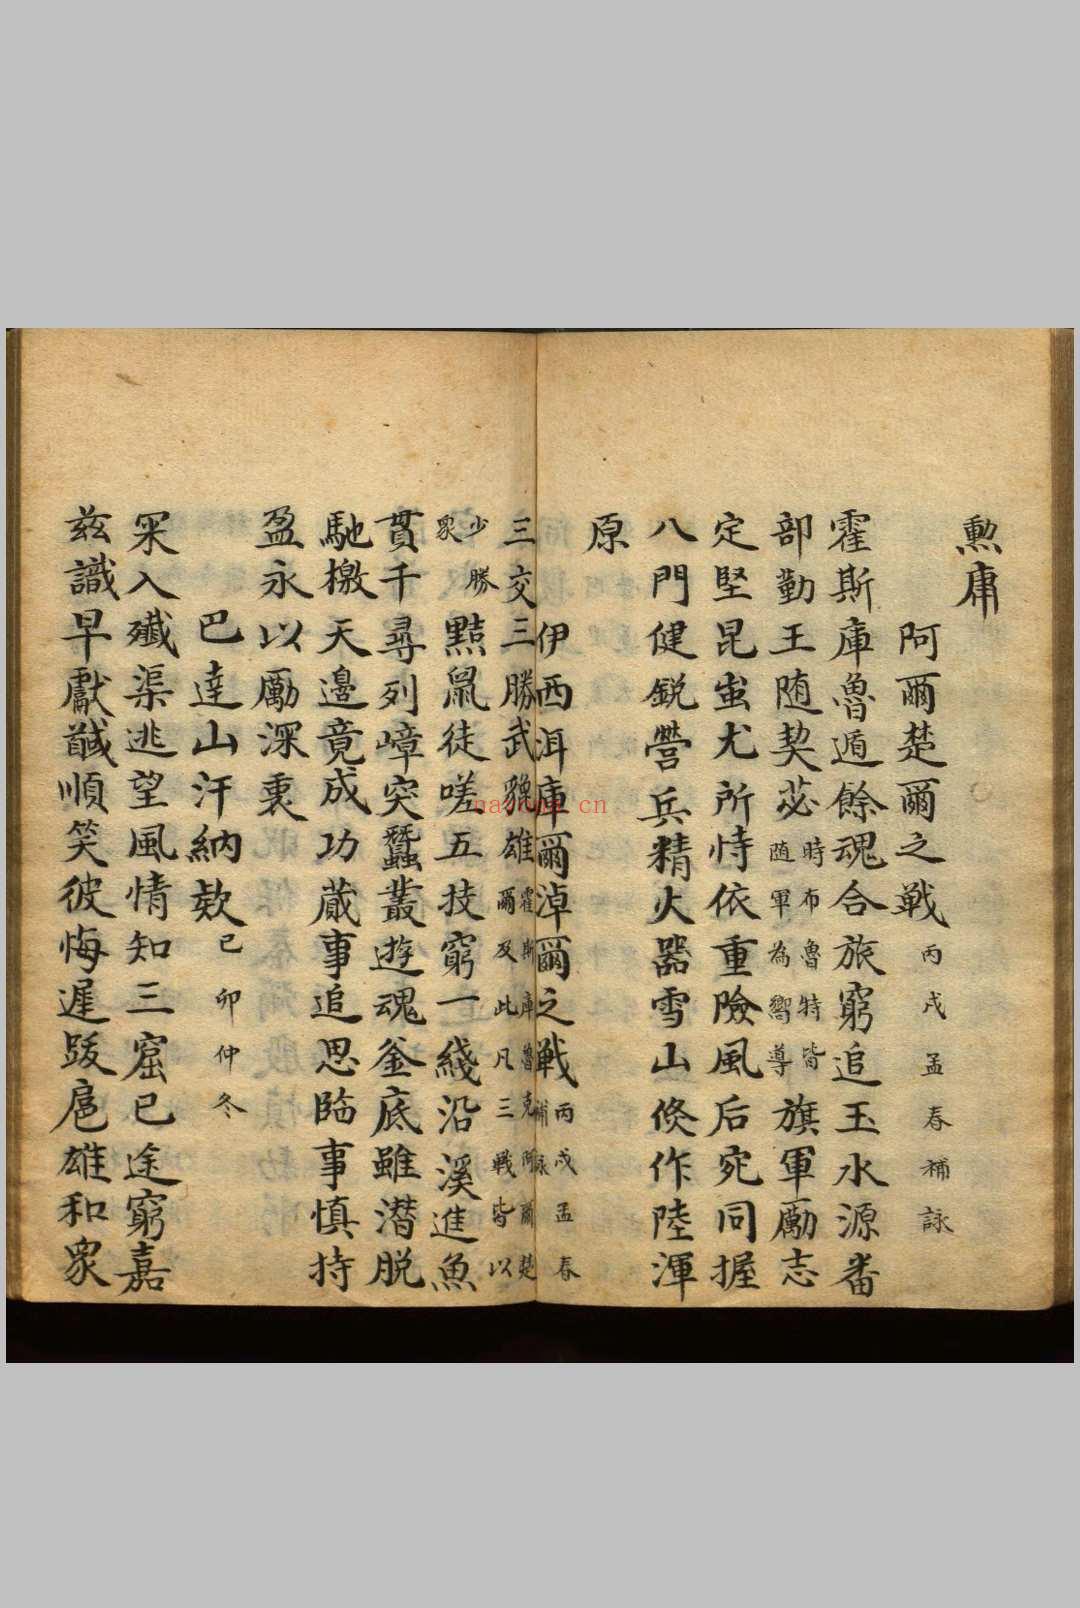 勲庸
阿爾楚爾之戦丙戌孟春補詠
霍斯庫魯遁餘魂合旅窮追玉水源畨
部勤王随契苾時布魯特皆随軍為嚮導旗軍勵志
定堅昆蚩尤所恃依重險風后宛同握
八門健鋭營兵精火器雪山倐作陸渾
原
伊西洱庫爾淖爾之戦丙戌孟春補詠
三交三勝武貔雄霍斯庫魯克阿爾楚爾及此凡三戦皆以
少勝衆㸃鼠徒嗟五技窮一綫沿溪進魚
貫千尋列嶂突蠶叢遊魂釜底雖潜脱
馳檄天邊竟成功蕆事追思臨事慎持
盈永以勵深裏
巴逹山汗納欵己卯仲冬
罙入殲渠逃望風情知三窟已途窮嘉
兹識早獻馘順笑彼悔遲跋扈雄和衆
nayona.cn